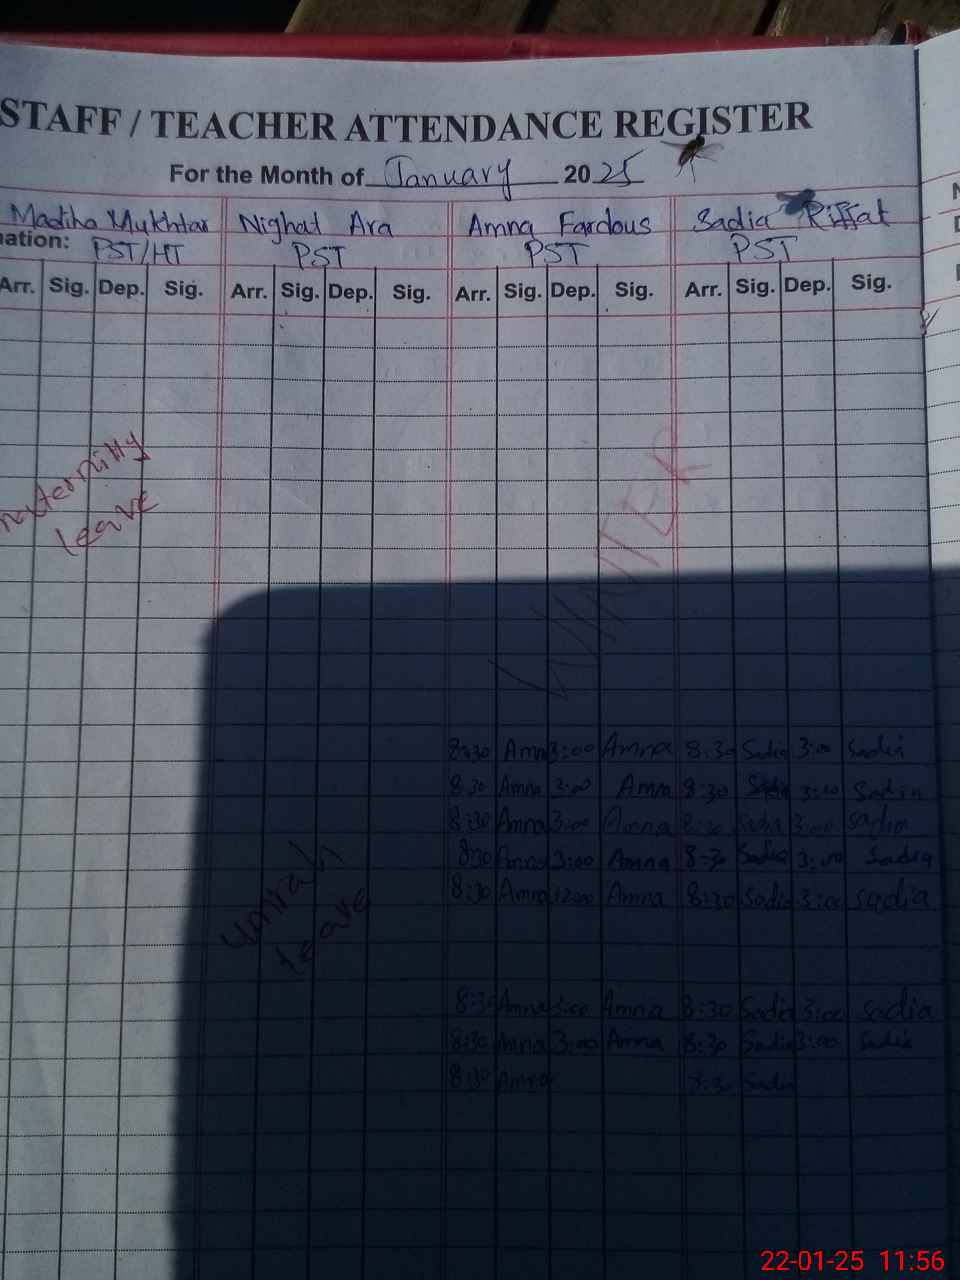 STAFF / TEACHER ATTENDANCE REGISTER
For the Month of January 2025
Madiha Mukhtar Nighat Ara Amna Fardous Sadia Riffat
nation: PST/HT PST PST PST
Arr. Sig. Dep. Sig. Arr. Sig. Dep. Sig. Arr. Sig. Dep. Sig. Arr. Sig. Dep. Sig.
maternitly
leave
WINTER
8:30 Amna 3:00 Amna 8:30 Sadia 3:00 Sadia
8:30 Amna 3:00 Amna 8:30 Sadia 3:00 Sadia
8:30 Amna 3:00 Amna 8:30 Sadia 3:00 Sadia
8:30 Amna 3:00 Amna 8:30 Sadia 3:00 Sadia
8:30 Amna 12:00 Amna 8:30 Sadia 3:00 Sadia
umrah
leave
8:30 Amna 3:00 Amna 8:30 Sadia 3:00 Sadia
8:30 Amna 3:00 Amna 8:30 Sadia 3:00 Sadia
8:30 Amna 8:30 Sadia
22-01-25 11:56